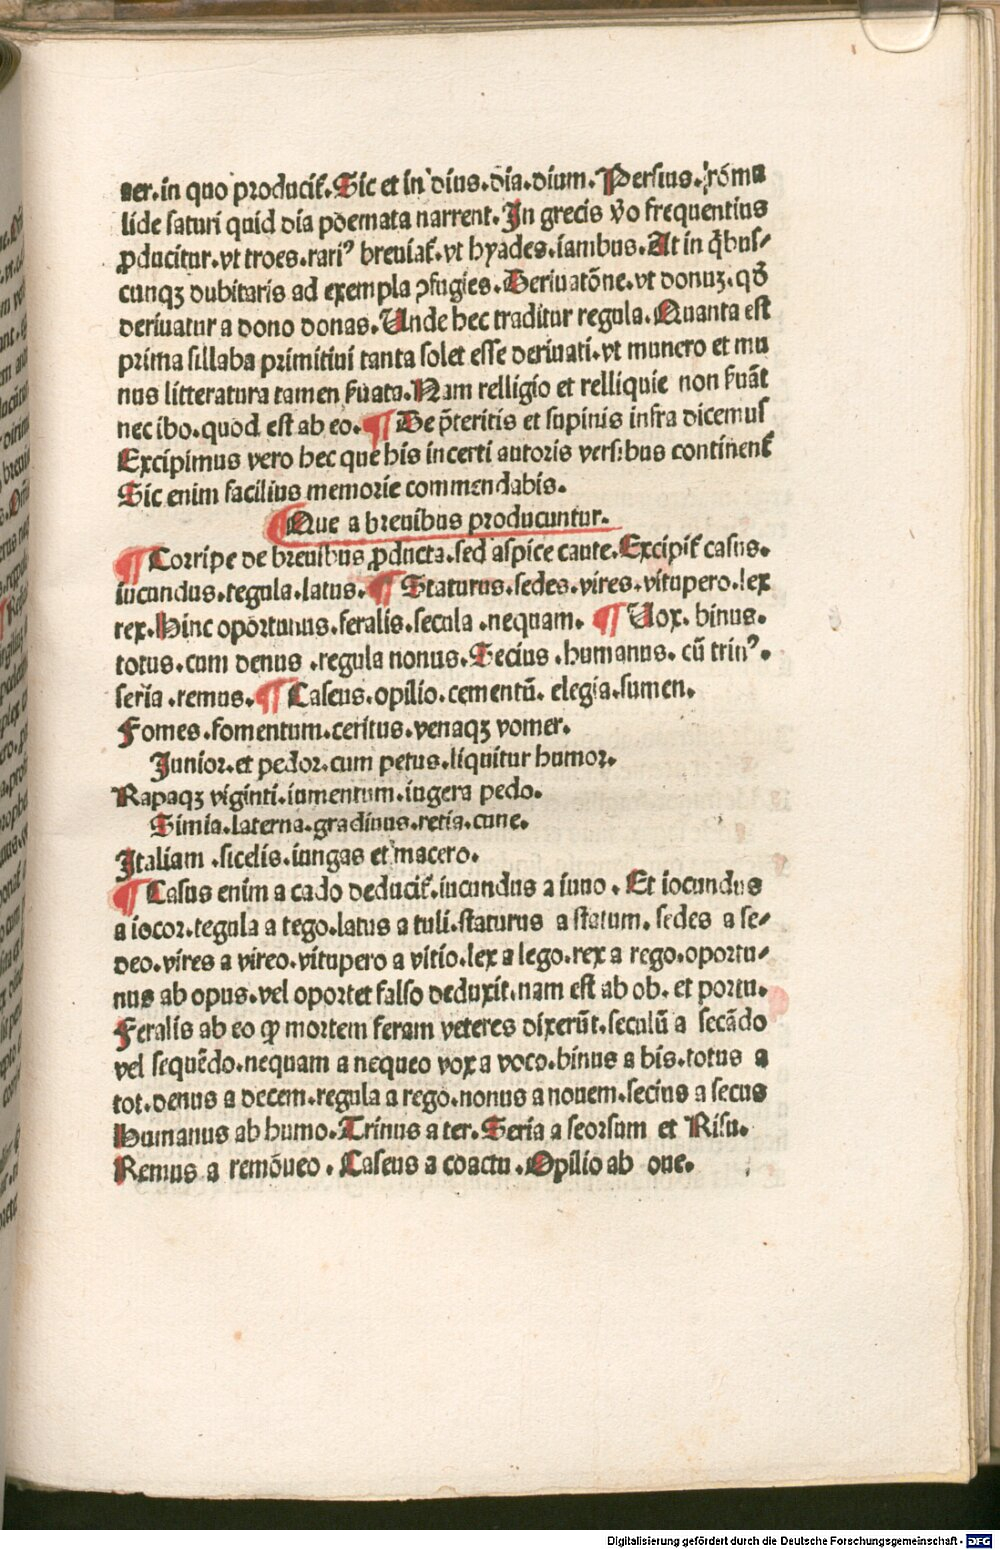 aer.in quo producit᷑.Sic et in dius.dia.dium.Persius.romu
lide saturi quid dia poemata narrent.In grecis v̆o frequentius
ꝓducitur.vt troes.rariꝰ breuiat᷑.vt hyades.iambus.At in q̇bus⸗
cunqꝫ dubitaris ad exempla ꝯfugies.Deriuatōne.vt donuꝫ.qđ
deriuatur a dono donas.Unde hec traditur regula.Quanta est
prima sillaba primitiui tanta solet esse deriuati.vt munero et mu
nus litteratura tamen ẜuata.Nam relligio et relliquie non ẜuāt
nec ibo.quod est ab eo.¶ De p̄teritis et supinis infra dicemus
Excipimus vero hec que his incerti autoris versibus continent᷑
Sic enim facilius memorie commendabis.
Que a breuibus producuntur.
¶ Corripe de breuibus ꝓducta.sed aspice caute.Excipit᷑ casus.
iucundus.tegula.latus.¶ Staturus.sedes.vires.vitupero.lex
rex.Hinc oportunus.feralis.secula .nequam. ¶ Uox. binus.
totus.cum denus .regula nonus.Secius .humanus. cū trinꝰ.
seria .remus.¶ Caseus.opilio.cementū. elegia.sumen.
Fomes.fomentum.ceritus.venaqꝫ vomer.
Iunior.et pedor.cum petus.liquitur humor.
Rapaqꝫ viginti.iumentum.iugera pedo.
Simia.laterna.gradiuus.retia.cune.
Italiam .sicelis.iungas et macero.
¶ Casus enim a cado deducit᷑.iucundus a iuuo . Et iocundus
a iocor.tegula a tego.latus a tuli.staturus a statum. sedes a se⸗
deo.vires a vireo.vitupero a vitio.lex a lego.rex a rego.oportu⸗
nus ab opus.vel oportet falso deduxit.nam est ab ob. et portu.
Feralis ab eo ꝙ mortem feram veteres dixerūt.seculū a secādo
vel sequēdo.nequam a nequeo vox a voco.binus a bis.totus a
tot.denus a decem.regula a rego.nonus a nouem.secius a secus
Humanus ab humo.Trinus a ter.Seria a seorsum et Risu.
Remus a remōueo . Caseus a coactu .Opilio ab oue.
Digitalisierung gefördert durch die Deutsche Forschungsgemeinschaft - DFG